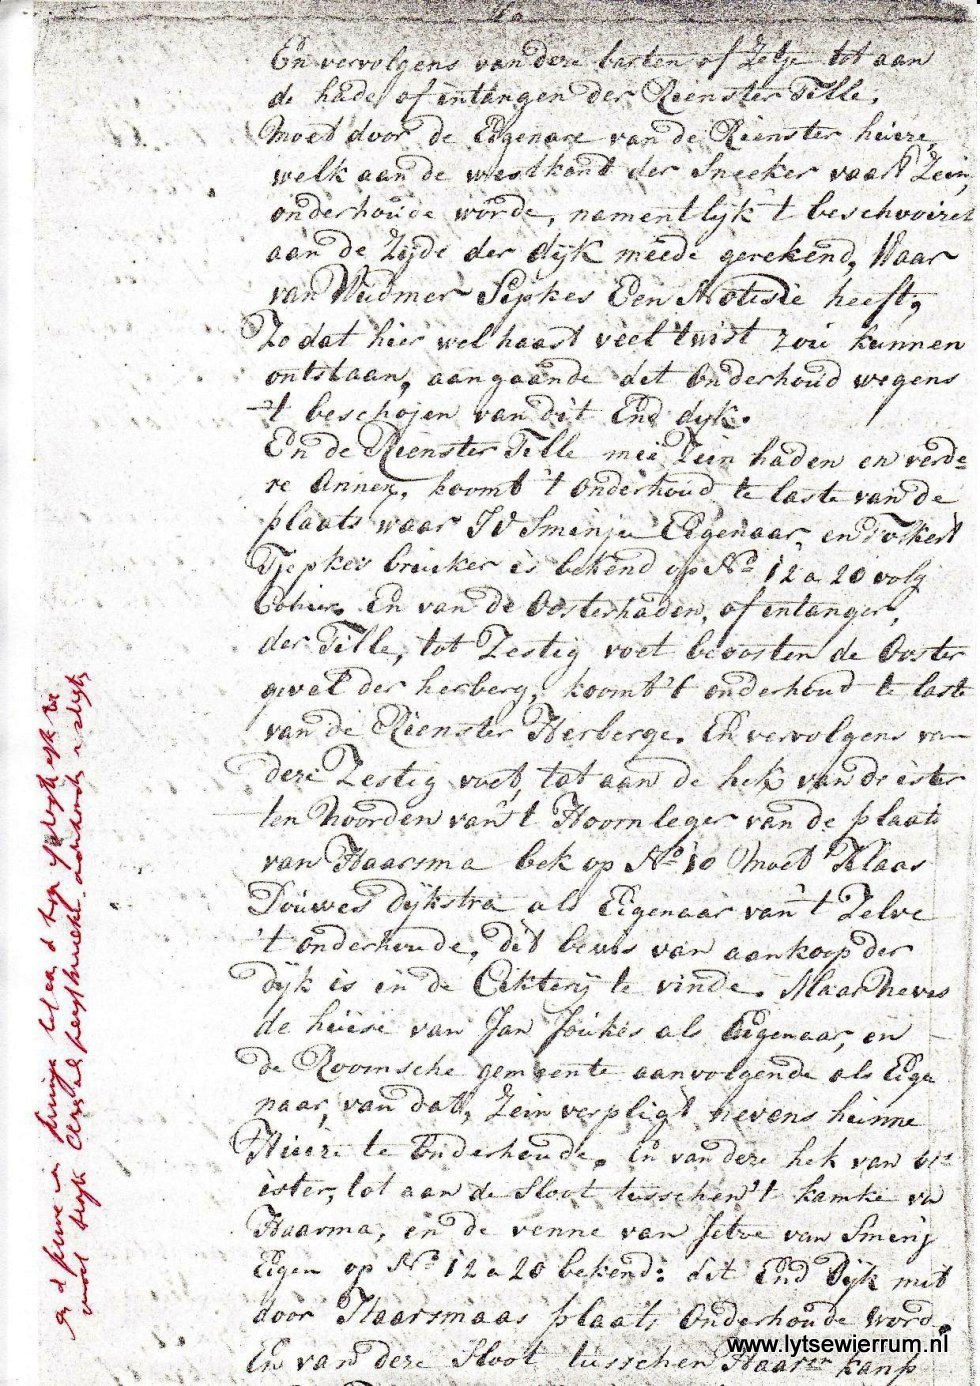 En vervolgens van deze barten of Zetje tot aan
de háde of entangen der Rienster Tille.
Moet door de Eigenare van de Rienster huize,
welk aan de westkant der Sneeker vaart Zein,
onderhoude worde, namentlijk 't beschooizen
aan de Zijde der dijk meede gerekend, Waar
van Weidmer Sijpkes Een Notisie heeft,
Zo dat hier wel haast veel twist zou kunnen
ontstaan, aangaande dit Onderhoud wegens
't beschojen van dit End dijk.
En de Rienster Tille mee Zein haden en verde=
re Annex, koomt 't onderhoud te laste van de
plaats waar Sminja Eigenaar en Folkert
Tjepkes bruiker is bekend op No 12 a 20 volg
Cohier. En van de Oosterhaden, of entanger,
der Tille, tot Zestig voet beoosten de Ooster
gevel der herberg, koomt 't onderhoud te laste
van de Rienster Herberge. En vervolgens van
deze Zestig voet, tot aan de hek van de ister
ten Noorden van 't Hoornleger van de plaats
van Haarsma bek op No 10 Moet Klaas
Douwes Dijkstra als Eigenaar van 't Zelve
't onderhoude, dit bewis van aankoop der
dijk is in de te vinde. Maar Neves
de huise van Jan Joukes als Eigenaar, en
de Roomsche gemeente aanvolgende als Eige
naar, van dat, Zein verpligt nevens hunne
Huize te Onderhoude. En van deze hek van de
ister, tot aan de Sloot tusschen 't kamke van
Haarma, en de venne van Jetze van Sminj
Eigen op No 12 a 20 bekend: dit End Dijk mot
door Haarsmaas plaats Onderhoude word.
En van deze Sloot tusschen Haarsm kamp
www.lytsewierrum.nl